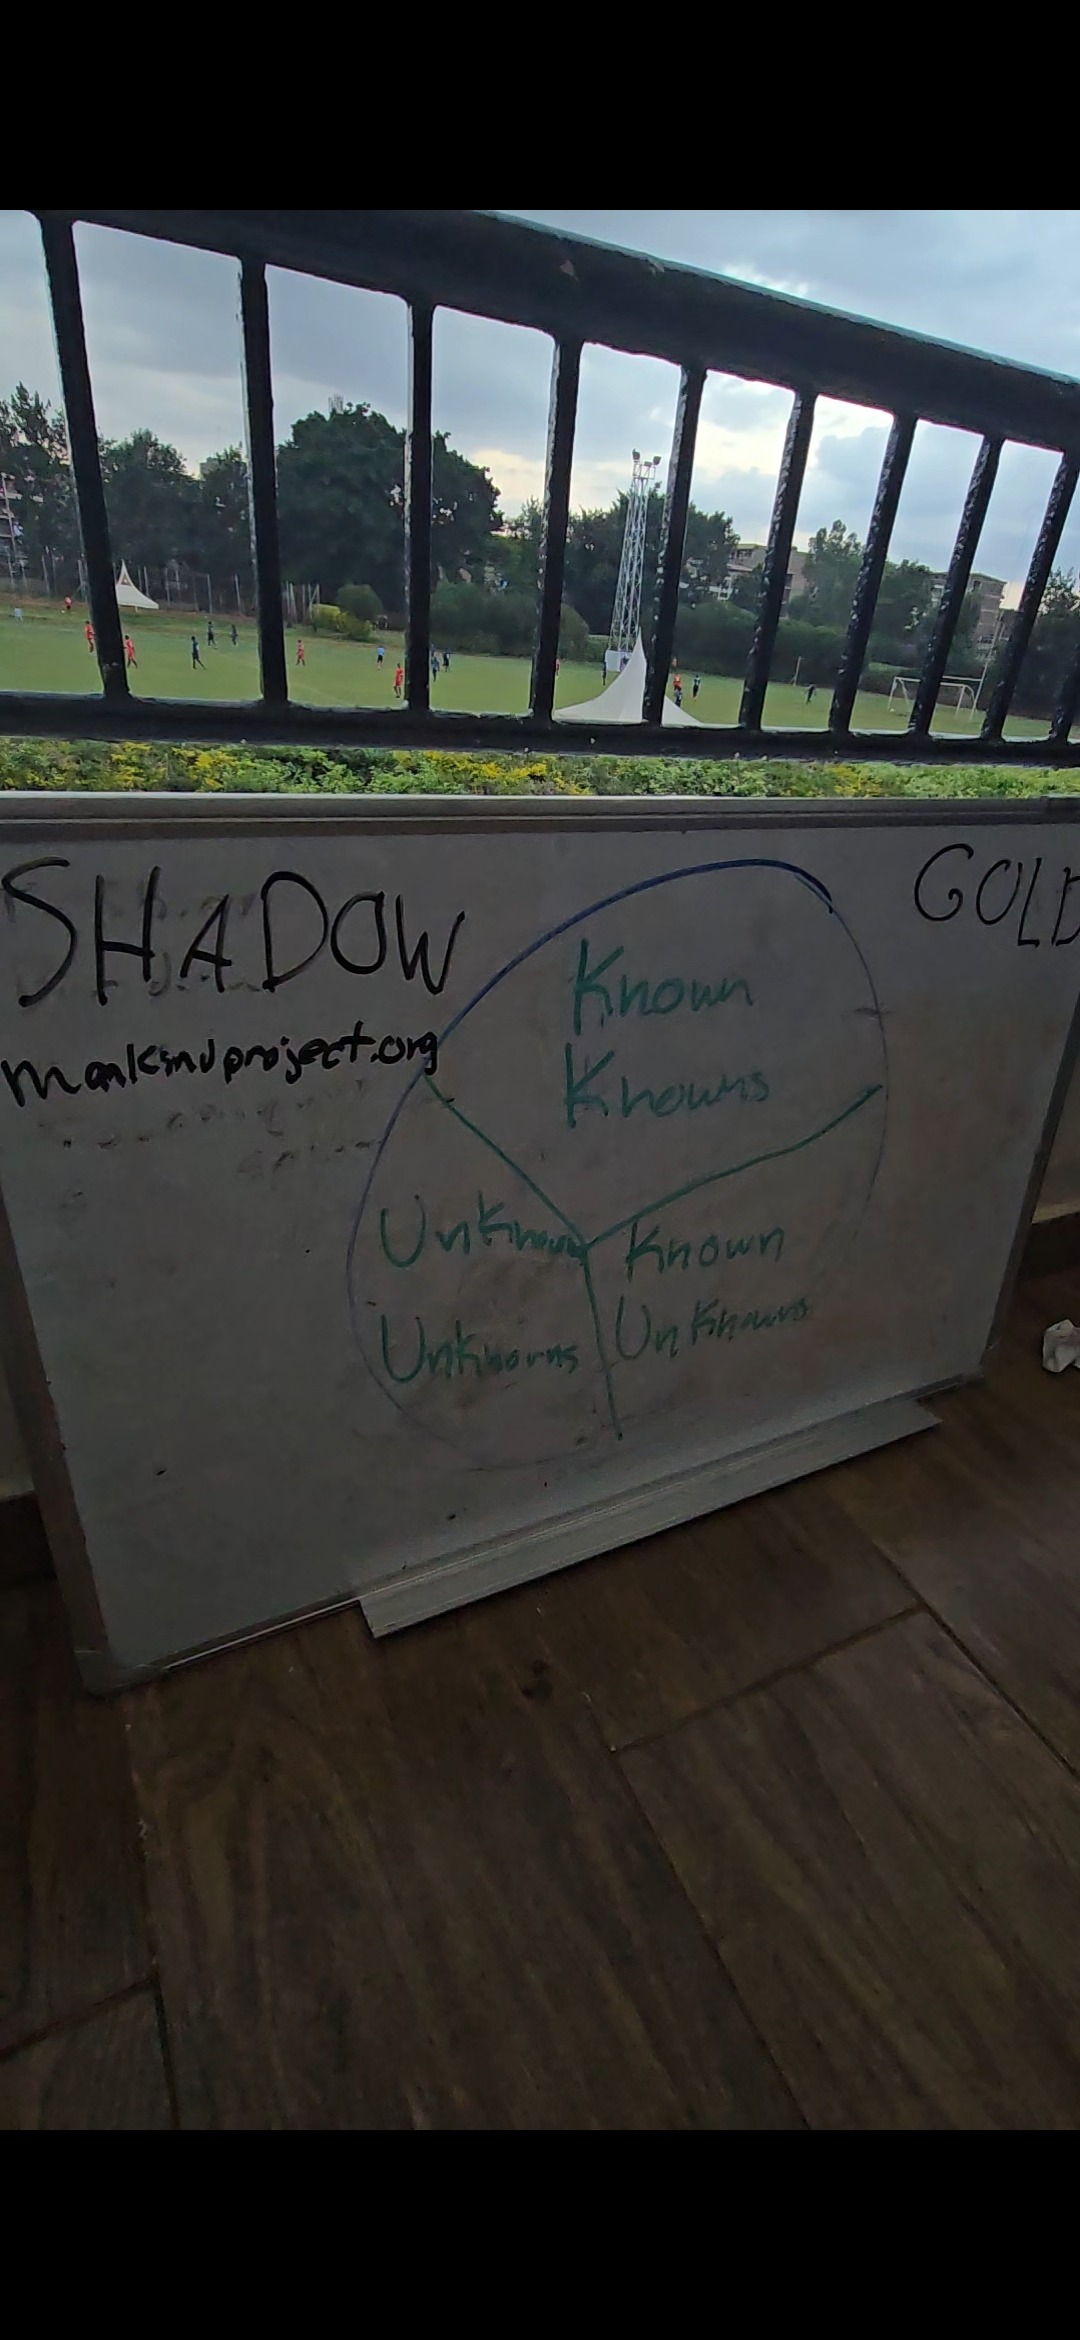 SHADOW
GOLD
mankindproject.org
Known
Knowns
Unknown
Unknowns
Known
Unknowns